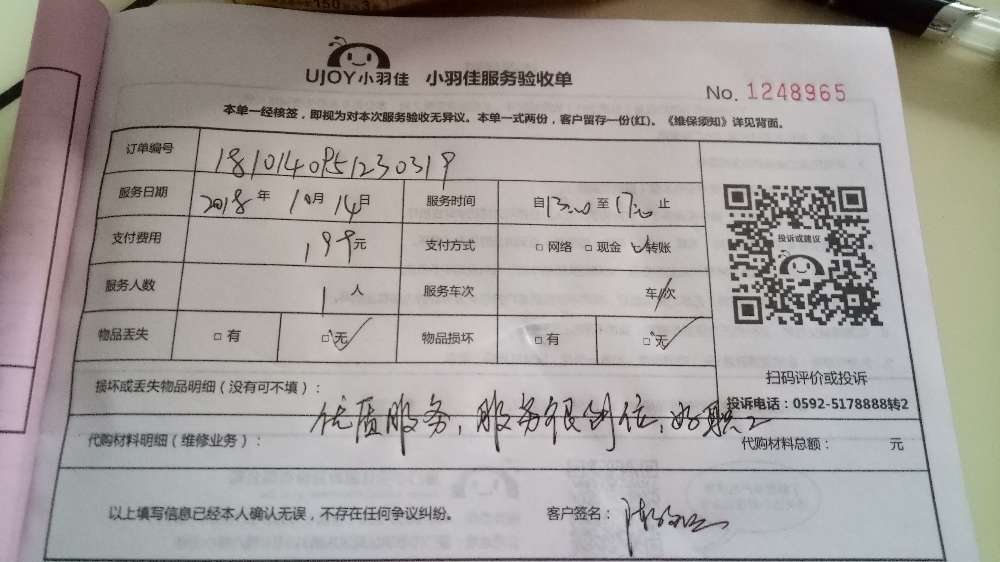 UJOY小羽佳 小羽佳服务验收单
No. 1248965
本单一经核签，即视为对本次服务验收无异议。本单一式两份，客户留存一份(红)。《维保须知》详见背面。
订单编号 1810140851230319
服务日期 2018年10月14日 服务时间 自13:00至17:00止
支付费用 199元 支付方式 □网络 □现金 □转账
服务人数 1人 服务车次 车/次
物品丢失 □有 □无 物品损坏 □有 □无
投诉或建议
扫码评价或投诉
投诉电话：0592-5178888转2
损坏或丢失物品明细（没有可不填）：
优质服务，服务很到位，好职工
代购材料明细（维修业务）： 代购材料总额： 元
以上填写信息已经本人确认无误，不存在任何争议纠纷。 客户签名：